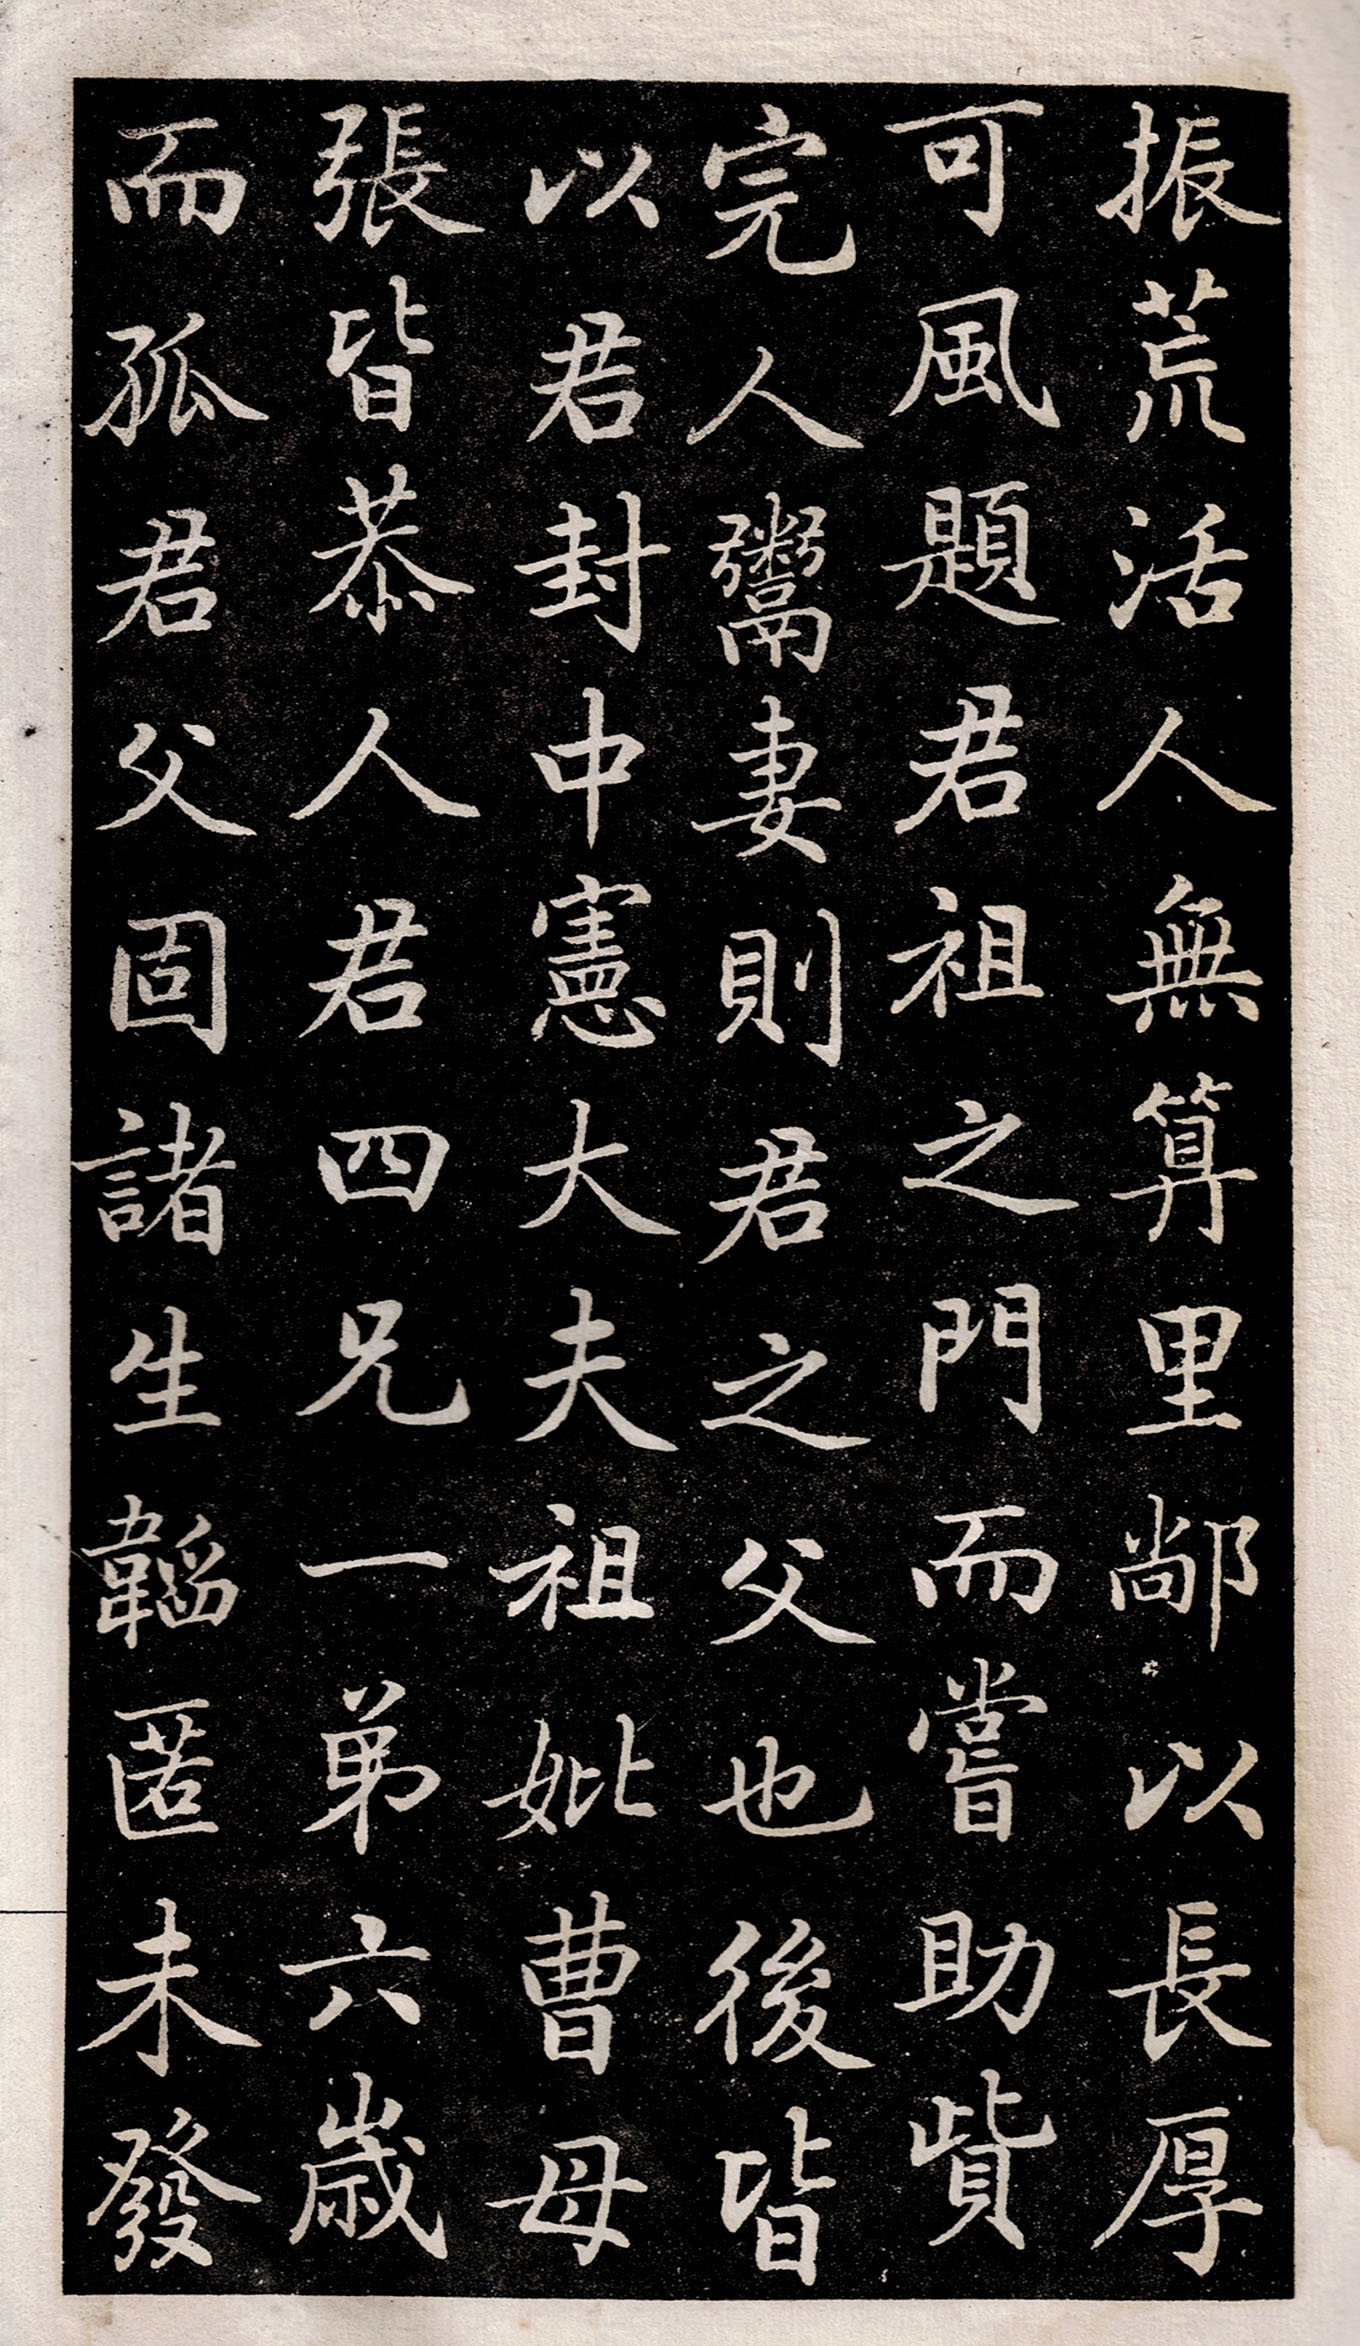 振荒活人無算里鄰以長厚
可風題君祖之門而嘗助貲
完人鬻妻則君之父也後皆
以君封中憲大夫祖妣曹母
張皆恭人君四兄一弟六歲
而孤君父固諸生韜匿未發